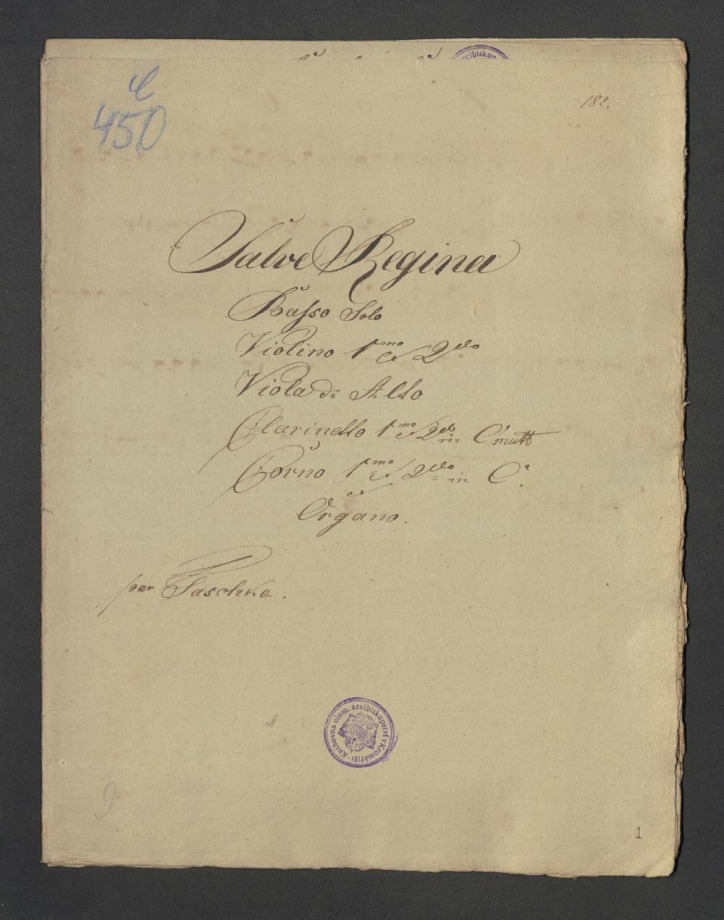 C
450
182.
Salve Regina
Basso Solo
Violino 1mo et 2do
Viola di Alto
Clarinetto 1mo et 2do in C mutt
Corno 1mo et 2do in C.
et
Organo.
par Paschke.
Knihovna olom. arcibiskupství v Kroměříži
9
1